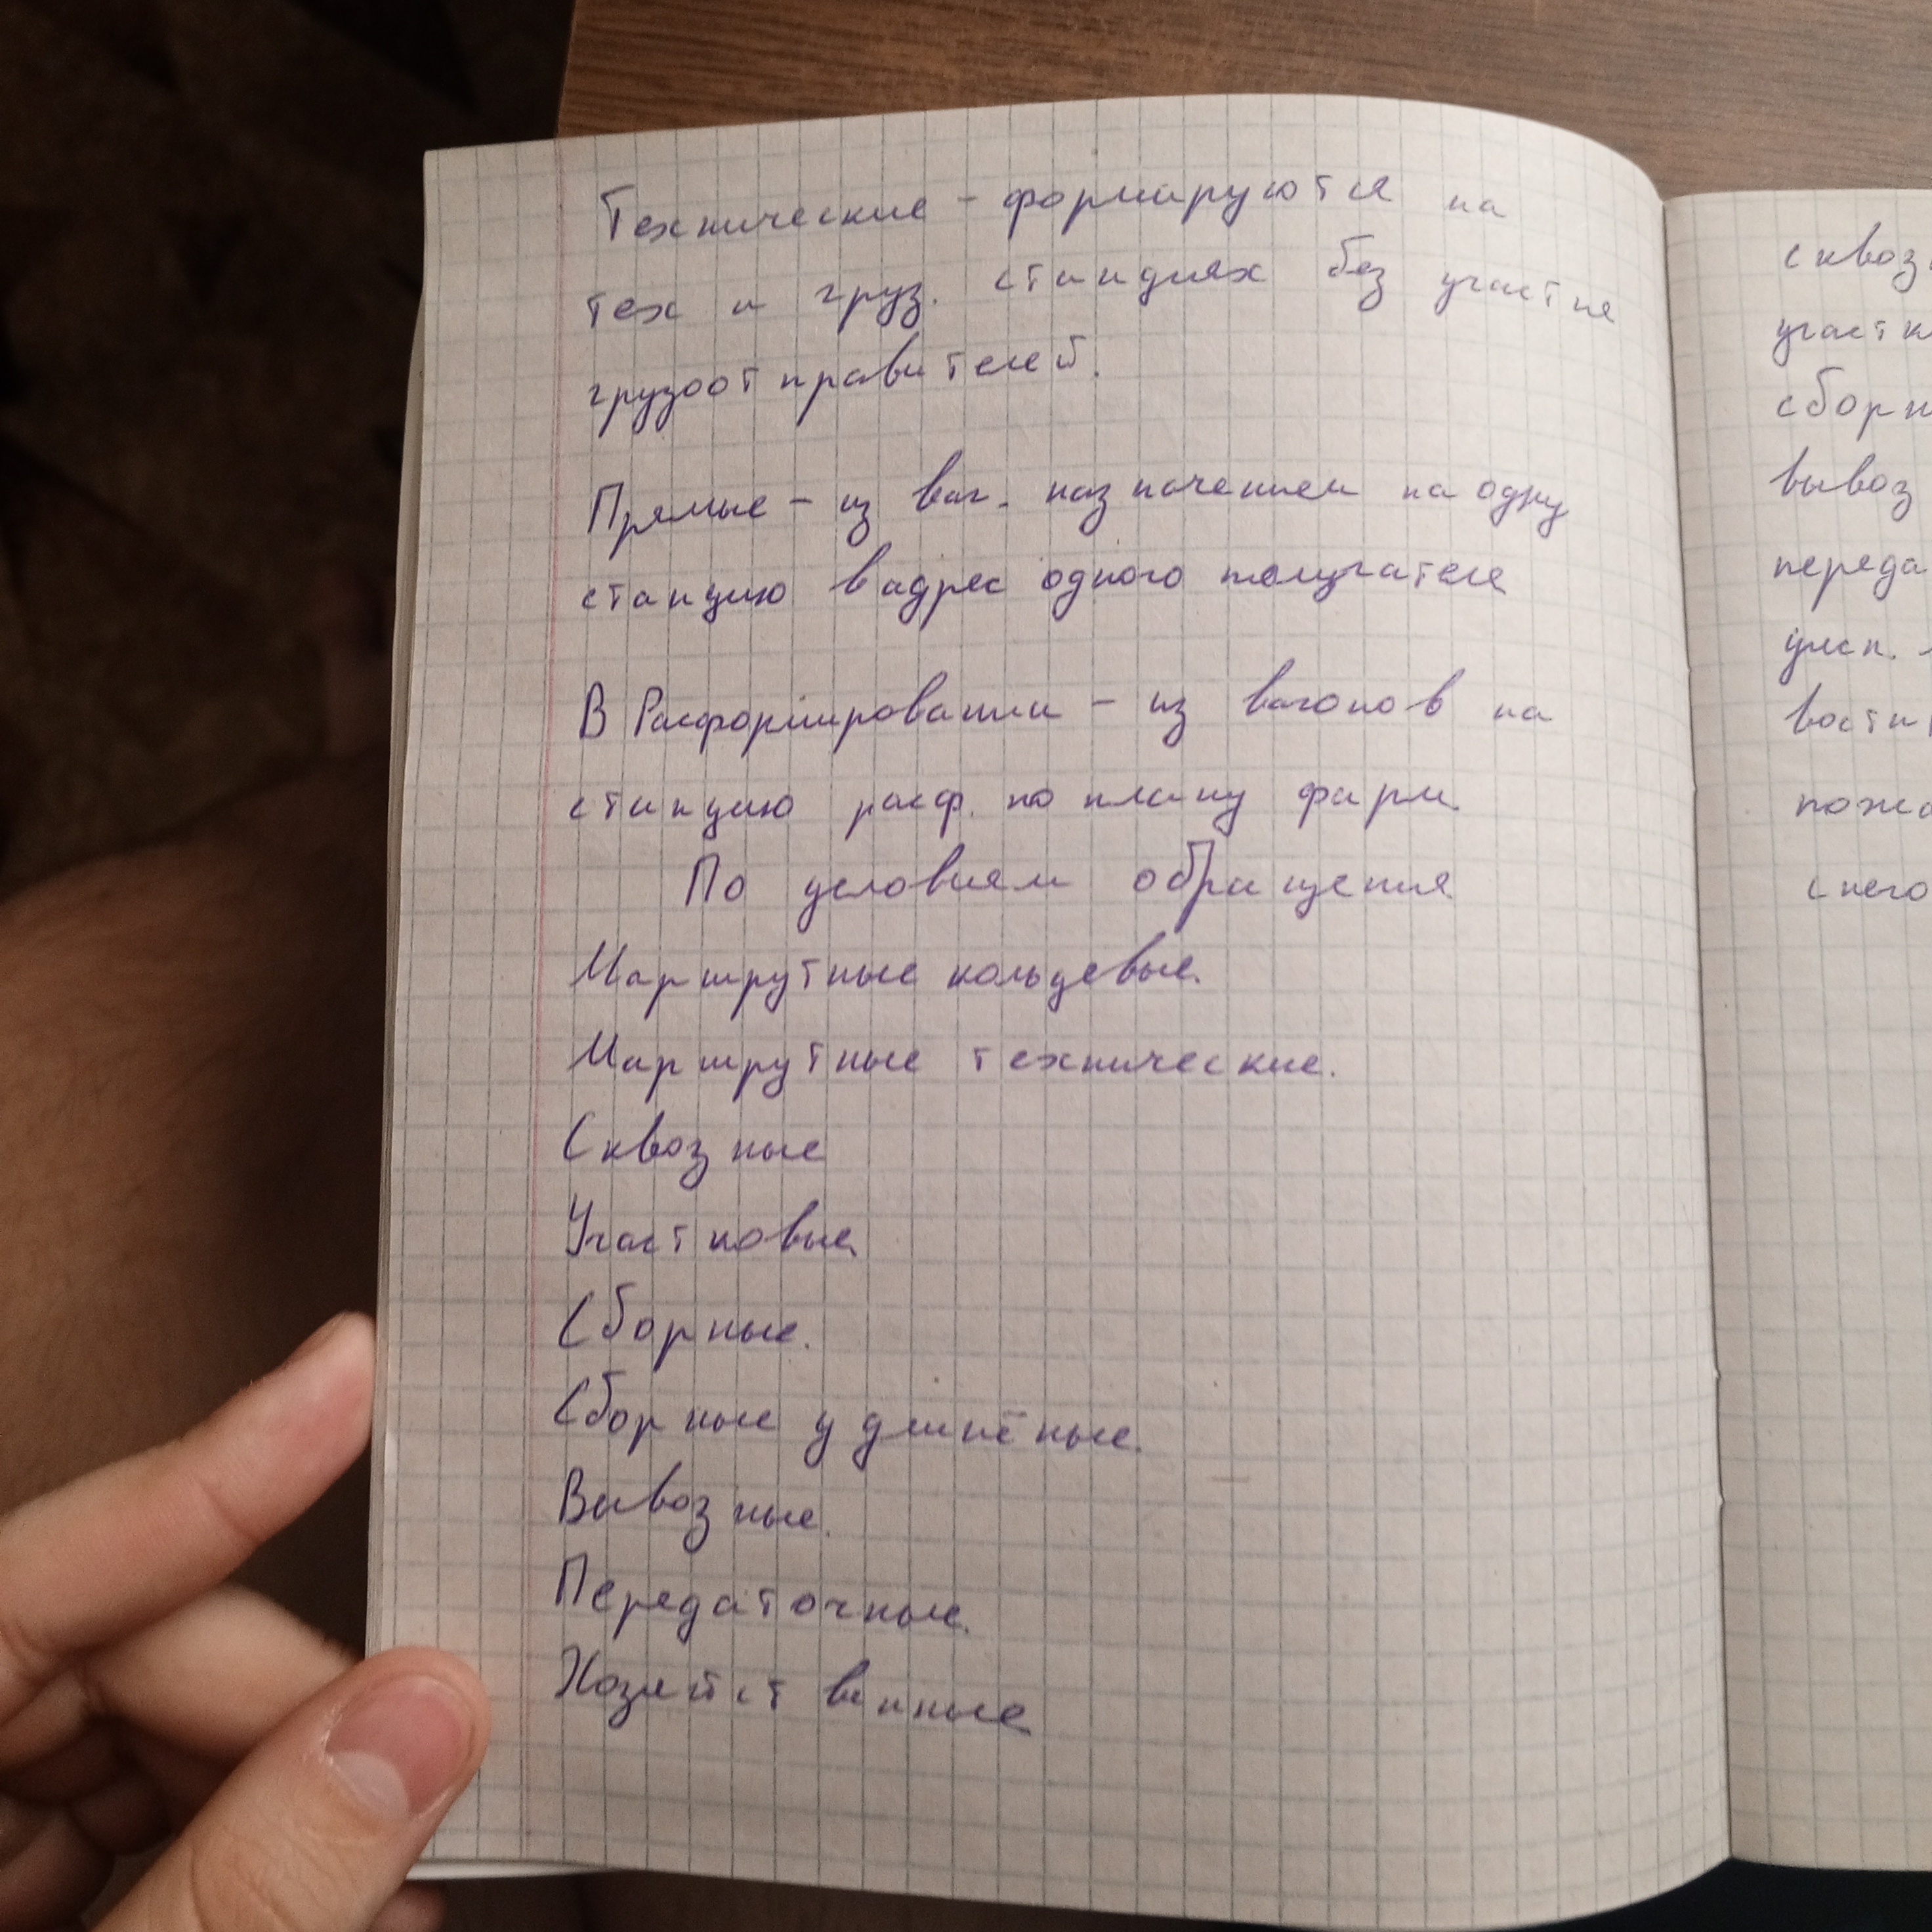 Технические - формируются на
тех и груз. станциях без участия
грузоотправителей.
Прямые - из ваг. назначением на одну
станцию в адрес одного получателя
В Расформировании - из вагонов на
станцию расф. по плану форм.
По условиям обращения
Маршрутные кольцевые.
Маршрутные технические.
Сквозные
Участковые
Сборные.
Сборные удлинёные.
Вывозные.
Передаточные.
Хозяйственные
сквоз
участк
сборн
вывоз
переда
пожа
снего